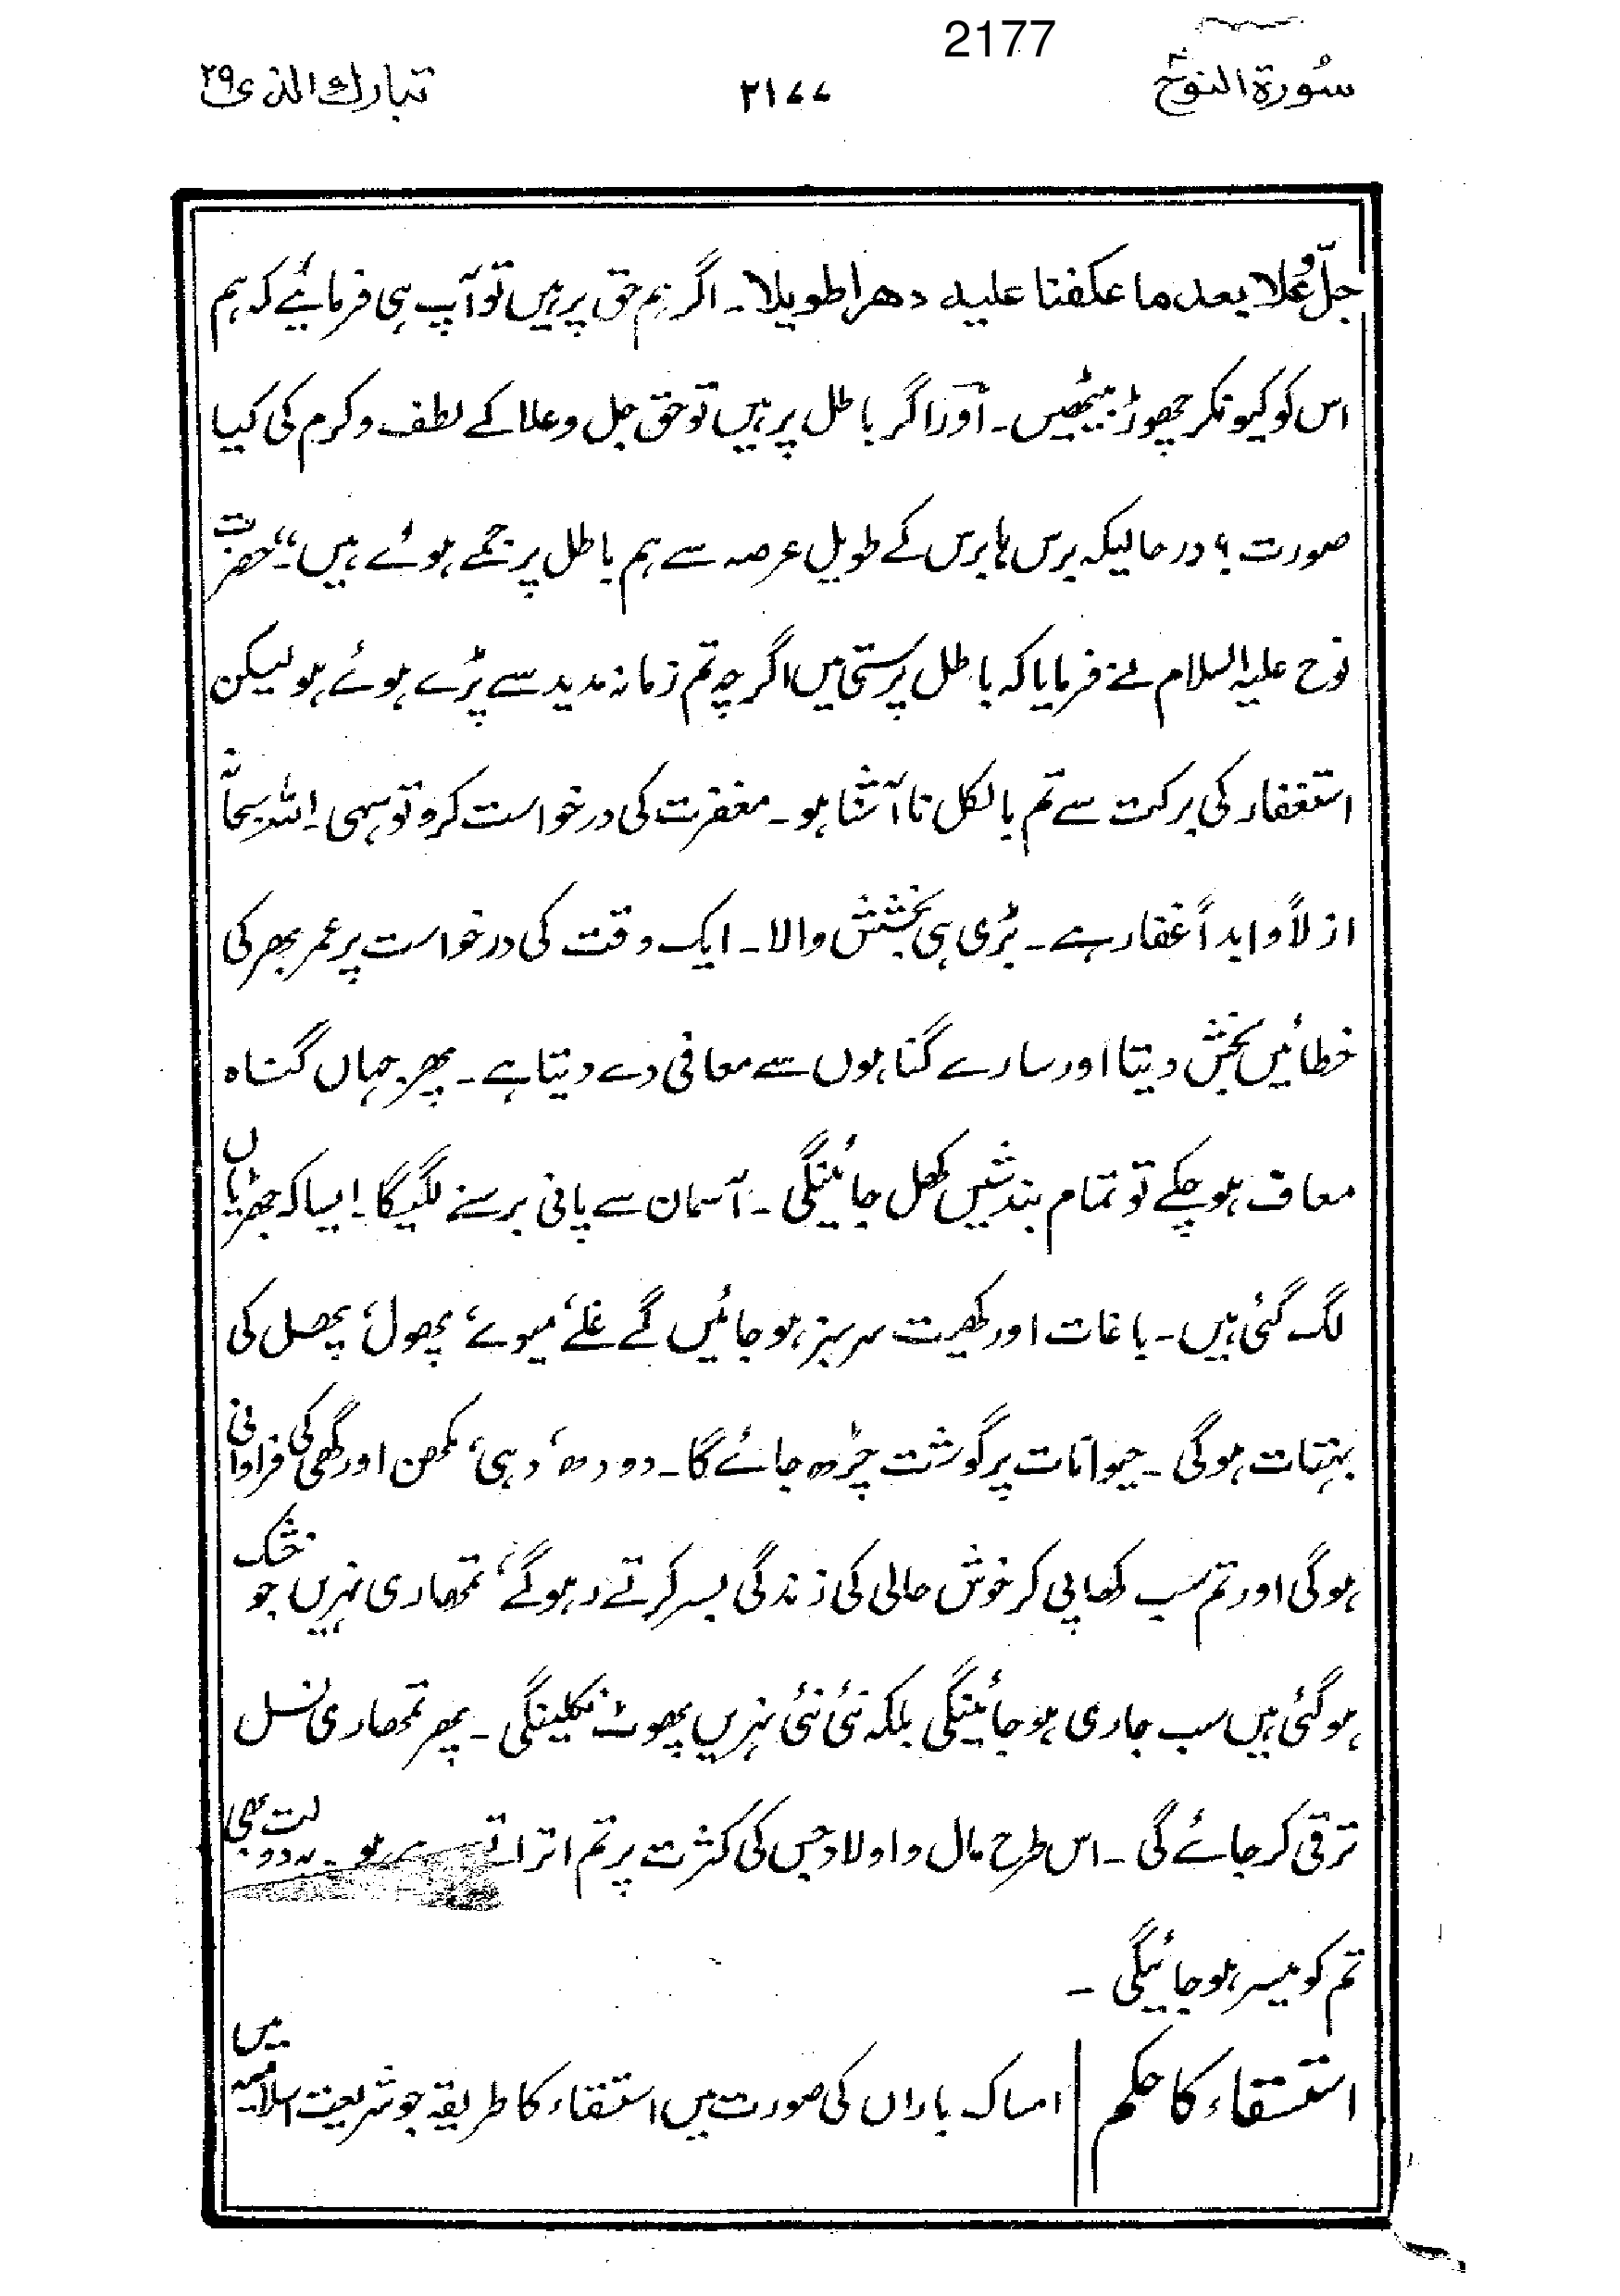 2177
سُورۃ النوح ۲۱۷۷ تبارك الذی ۲۹
جلّ وعُلا بعد ما عکفنا علیہ دھرا طویلا۔ اگر ہم حق پر ہیں تو آپ ہی فرمائیے کہ ہم
اس کو کیونکر چھوڑ بیٹھیں۔ آور اگر باطل پر ہیں تو حق جل وعلا کے لطف و کرم کی کیا
صورت؟ درحالیکہ برس ہا برس کے طویل عرصہ سے ہم باطل پر جمے ہوئے ہیں‘‘۔ حضرت
نوح علیہ السلام نے فرمایا کہ باطل پرستی میں اگرچہ تم زمانہ مدید سے پڑے ہوئے ہو لیکن
استغفار کی برکت سے تم بالکل نا آشنا ہو۔ مغفرت کی درخواست کرو تو سہی۔ اللہ سبحانہٗ
ازلاً و ابداً غفار ہے۔ بڑی ہی بخشش والا۔ ایک وقت کی درخواست پر عمر بھر کی
خطائیں بخش دیتا اور سارے گناہوں سے معافی دے دیتا ہے۔ پھر جہاں گناہ
معاف ہو چکے تو تمام بندشیں کھل جائینگی۔ آسمان سے پانی برسنے لگیگا۔ ایسا کہ جھڑیاں
لگ گئی ہیں۔ باغات اور کھیت سرسبز ہو جائیں گے غلے‘ میوے‘ پھول‘ پھل کی
بہتات ہوگی۔ حیوانات پر گوشت چڑھ جائے گا۔ دودھ‘ دہی‘ مکھن اور گھی کی فراوانی
ہوگی اور تم سب کھا پی کر خوش حالی کی زندگی بسر کرتے رہو گے‘ تمھاری نہریں جو خشک
ہو گئی ہیں سب جاری ہو جائینگی بلکہ نئی نئی نہریں پھوٹ نکلینگی۔ پھر تمھاری نسل
ترقی کر جائے گی۔ اس طرح مال و اولاد جس کی کثرت پر تم اتراتے ہو۔ یہ دولت بھی
تم کو میسر ہو جائیگی۔
استسقاء کا حکم | امساک باراں کی صورت میں استسقاء کا طریقہ جو شریعت اسلامیہ میں